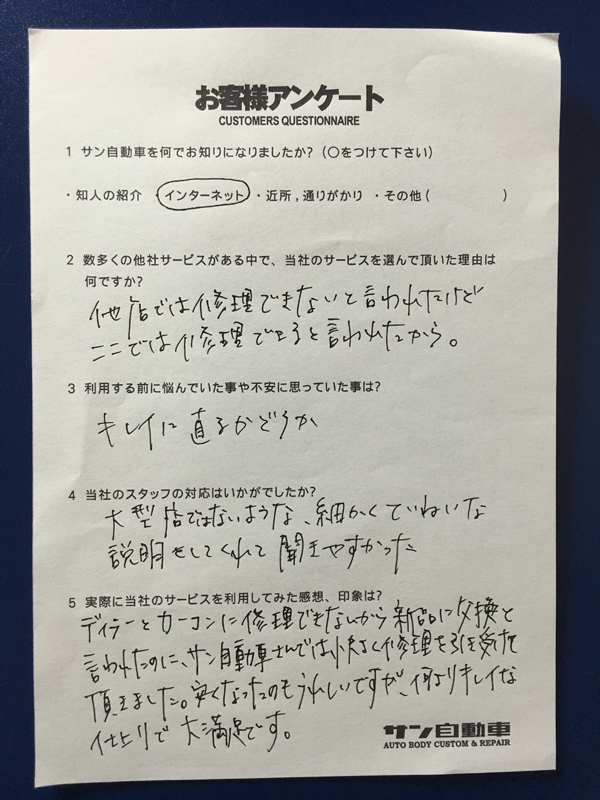 お客様アンケート
CUSTOMERS QUESTIONNAIRE
1 サン自動車を何でお知りになりましたか?(○をつけて下さい)
・知人の紹介 ・インターネット ・近所,通りがかり ・その他( )
2 数多くの他社サービスがある中で、当社のサービスを選んで頂いた理由は
何ですか?
他店では修理できないと言われたけど
ここでは修理できると言われたから。
3 利用する前に悩んでいた事や不安に思っていた事は?
キレイに直るかどうか
4 当社のスタッフの対応はいかがでしたか?
大型店ではないような、細かくていねいな
説明をしてくれて聞きやすかった
5 実際に当社のサービスを利用してみた感想、印象は?
ディラーとカーコンに修理できないから新品に交換と
言われたのに、サン自動車さんでは快よく修理を引き受けて
頂きました。安くなったのもうれしいですが、何よりキレイな
仕上りで大満足です。
サン自動車
AUTO BODY CUSTOM & REPAIR